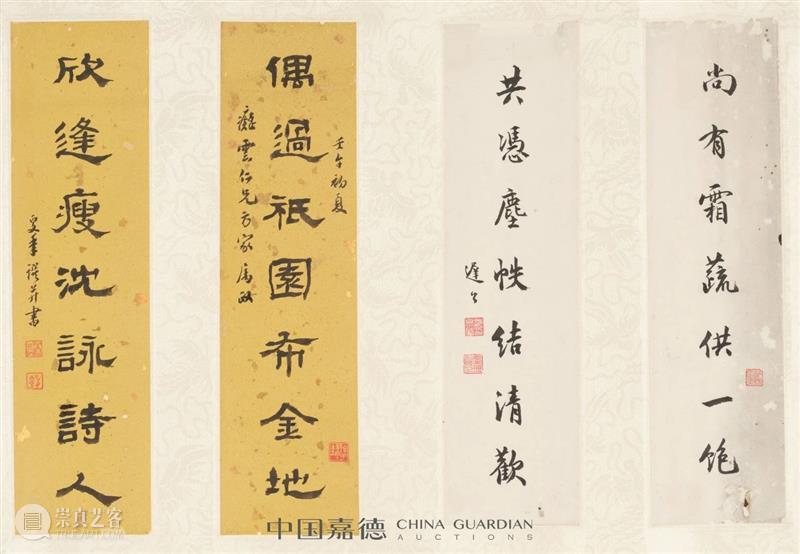 尚有霜蔬供一飽
共憑塵帙結清歡
遲公
偶過祇園布金地
壬午初夏
癡雲仁兄方家屬政
欣逢瘦沈詠詩人
書
中国嘉德 CHINA GUARDIAN
AUCTIONS
崇真艺客